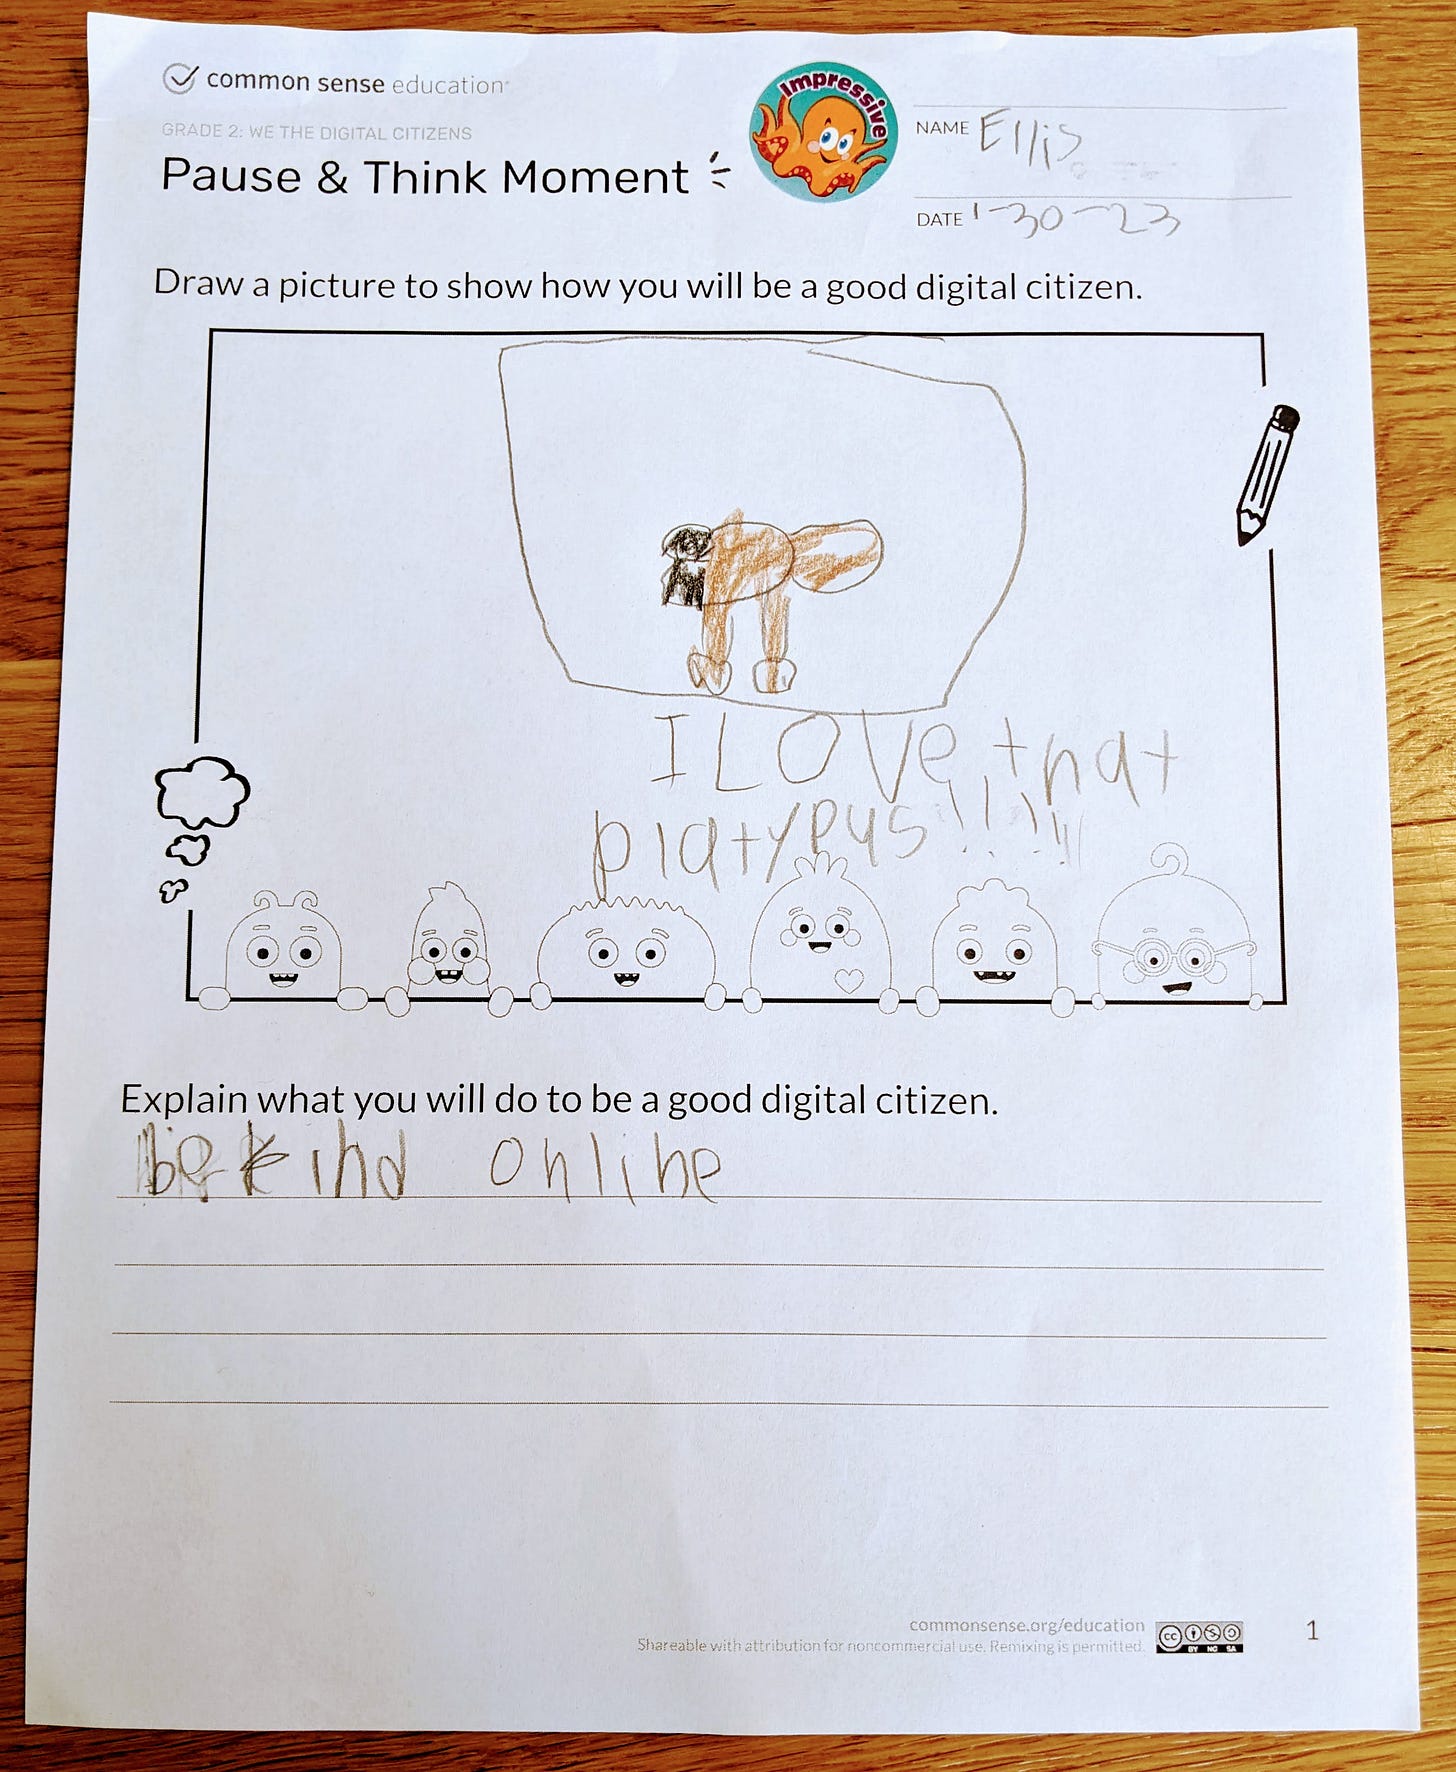 common sense education
GRADE 2: WE THE DIGITAL CITIZENS
Pause & Think Moment
Impressive
NAME Ellis
DATE 1-30-23
Draw a picture to show how you will be a good digital citizen.
I LOVe that
platypus!!!!!
Explain what you will do to be a good digital citizen.
be kind online
commonsense.org/education
Shareable with attribution for noncommercial use. Remixing is permitted.
cc BY NC SA
1